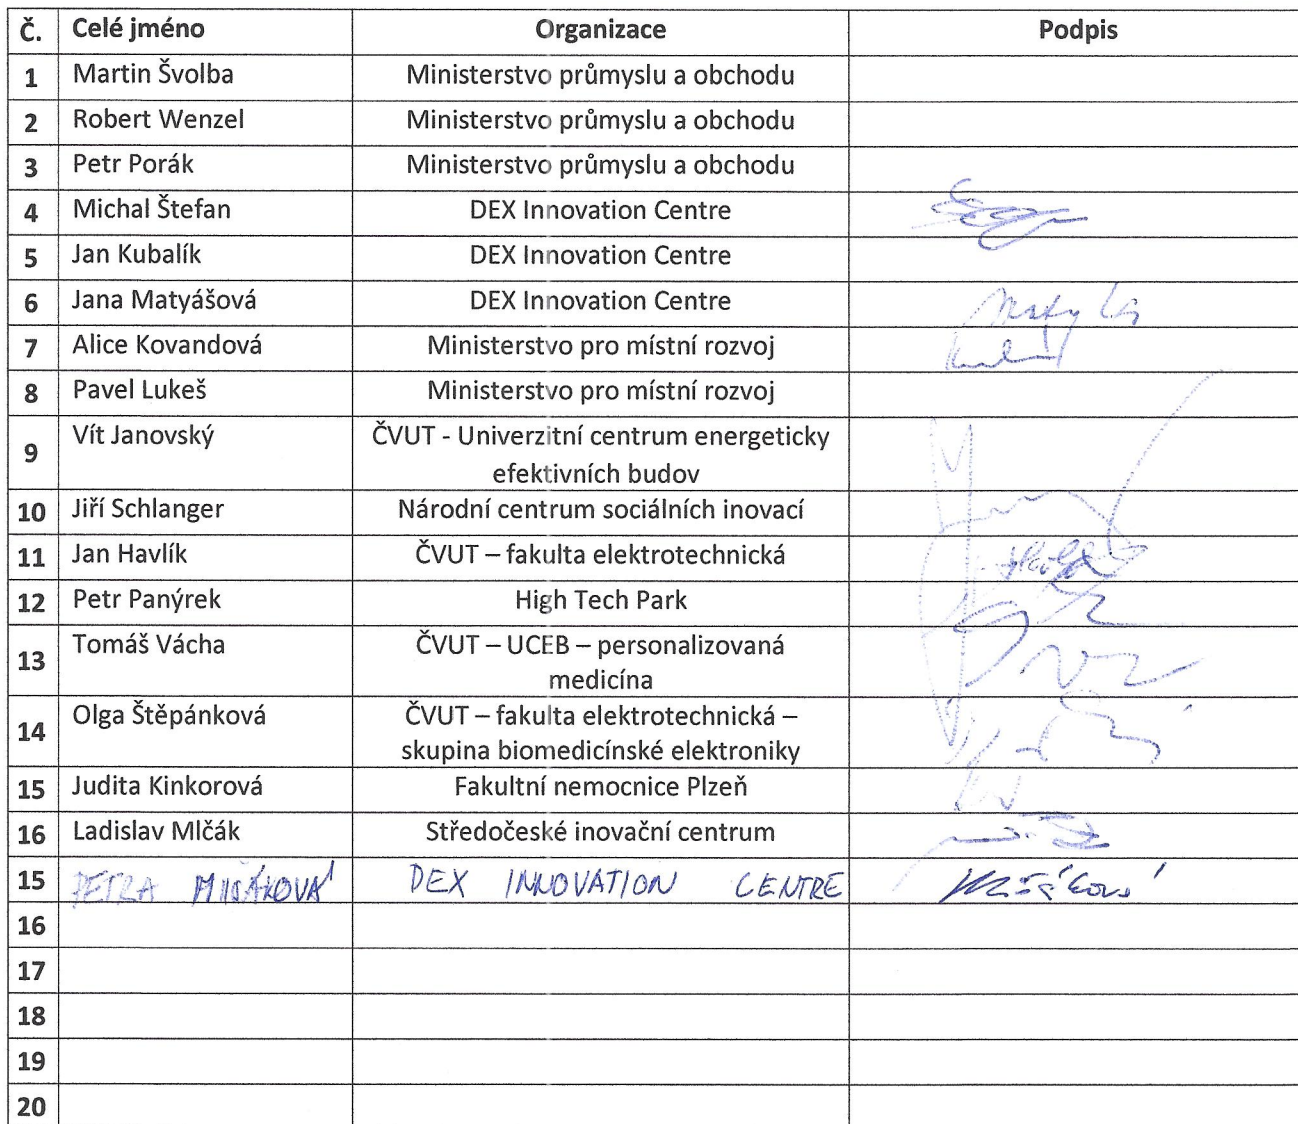 Č. Celé jméno Organizace Podpis
1 Martin Švolba Ministerstvo průmyslu a obchodu
2 Robert Wenzel Ministerstvo průmyslu a obchodu
3 Petr Porák Ministerstvo průmyslu a obchodu
4 Michal Štefan DEX Innovation Centre
5 Jan Kubalík DEX Innovation Centre
6 Jana Matyášová DEX Innovation Centre
7 Alice Kovandová Ministerstvo pro místní rozvoj
8 Pavel Lukeš Ministerstvo pro místní rozvoj
9 Vít Janovský ČVUT - Univerzitní centrum energeticky
efektivních budov
10 Jiří Schlanger Národní centrum sociálních inovací
11 Jan Havlík ČVUT – fakulta elektrotechnická
12 Petr Panýrek High Tech Park
13 Tomáš Vácha ČVUT – UCEB – personalizovaná
medicína
14 Olga Štěpánková ČVUT – fakulta elektrotechnická –
skupina biomedicínské elektroniky
15 Judita Kinkorová Fakultní nemocnice Plzeň
16 Ladislav Mlčák Středočeské inovační centrum
15 PETRA MIŠÁKOVÁ DEX INNOVATION CENTRE
16
17
18
19
20